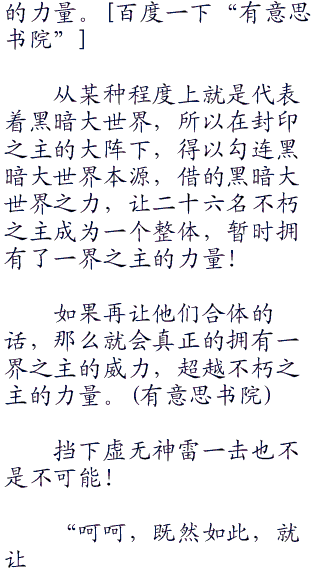 的力量。[百度一下“有意思
书院”]
从某种程度上就是代表
着黑暗大世界，所以在封印
之主的大阵下，得以勾连黑
暗大世界本源，借的黑暗大
世界之力，让二十六名不朽
之主成为一个整体，暂时拥
有了一界之主的力量！
如果再让他们合体的
话，那么就会真正的拥有一
界之主的威力，超越不朽之
主的力量。(有意思书院)
挡下虚无神雷一击也不
是不可能！
“呵呵，既然如此，就
让